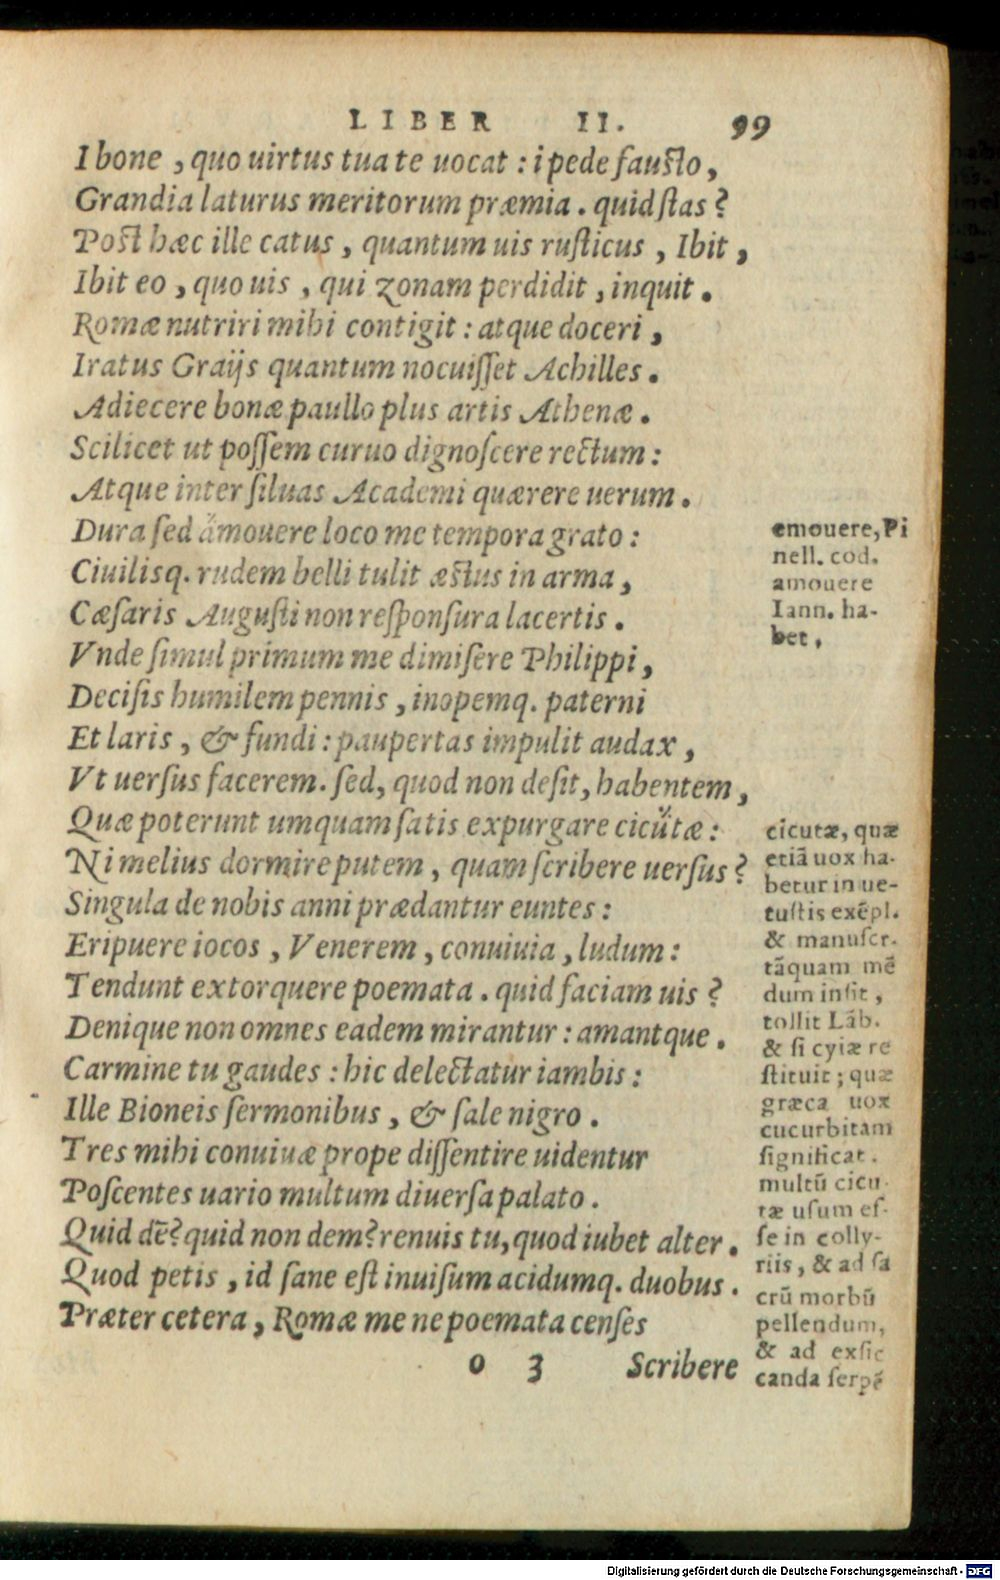 LIBER II. 99
I bone, quo uirtus tua te uocat: i pede fausto,
Grandia laturus meritorum præmia. quid stas?
Post hæc ille catus, quantum uis rusticus, Ibit,
Ibit eo, quo uis, qui zonam perdidit, inquit.
Romæ nutriri mihi contigit: atque doceri,
Iratus Graijs quantum nocuisset Achilles.
Adiecere bonæ paullo plus artis Athenæ.
Scilicet ut possem curuo dignoscere rectum:
Atque inter siluas Academi quærere uerum.
Dura sed amouere loco me tempora grato:
Ciuilisq. rudem belli tulit æstus in arma,
Cæsaris Augusti non responsura lacertis.
Vnde simul primum me dimisere Philippi,
Decisis humilem pennis, inopemq. paterni
Et laris, & fundi: paupertas impulit audax,
Vt uersus facerem. sed, quod non desit, habentem,
Quæ poterunt umquam satis expurgare cicutæ:
Ni melius dormire putem, quam scribere uersus?
Singula de nobis anni prædantur euntes:
Eripuere iocos, Venerem, conuiuia, ludum:
Tendunt extorquere poemata. quid faciam uis?
Denique non omnes eadem mirantur: amantque.
Carmine tu gaudes: hic delectatur iambis:
Ille Bioneis sermonibus, & sale nigro.
Tres mihi conuiuæ prope dissentire uidentur
Poscentes uario multum diuersa palato.
Quid dẽ? quid non dem? renuis tu, quod iubet alter.
Quod petis, id sane est inuisum acidumq. duobus.
Præter cetera, Romæ me ne poemata censes
o 3 Scribere
emouere, Pi
nell. cod.
amouere
Iann. ha-
bet.
cicutæ, quæ
etiã uox ha-
betur in ue-
tustis exẽpl.
& manuscr.
tãquam mẽ
dum insit,
tollit Lãb.
& si cyiæ re
stituit; quæ
græca uox
cucurbitam
significat.
multũ cicu
tæ usum es-
se in colly-
riis, & ad sa
crũ morbũ
pellendum,
& ad exsic
canda serpẽ
Digitalisierung gefördert durch die Deutsche Forschungsgemeinschaft - DFG